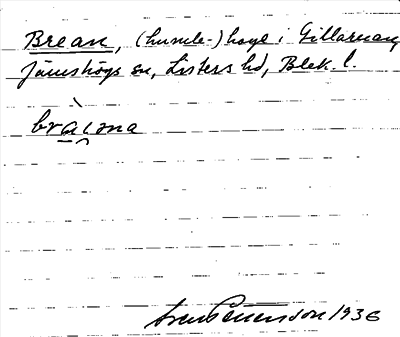 Brean, (humle-)hage i Gillaruna,
Jämshögs sn, Listers hd, Blek. l.
bràɩ̯ɔna
Sven Benson 1936